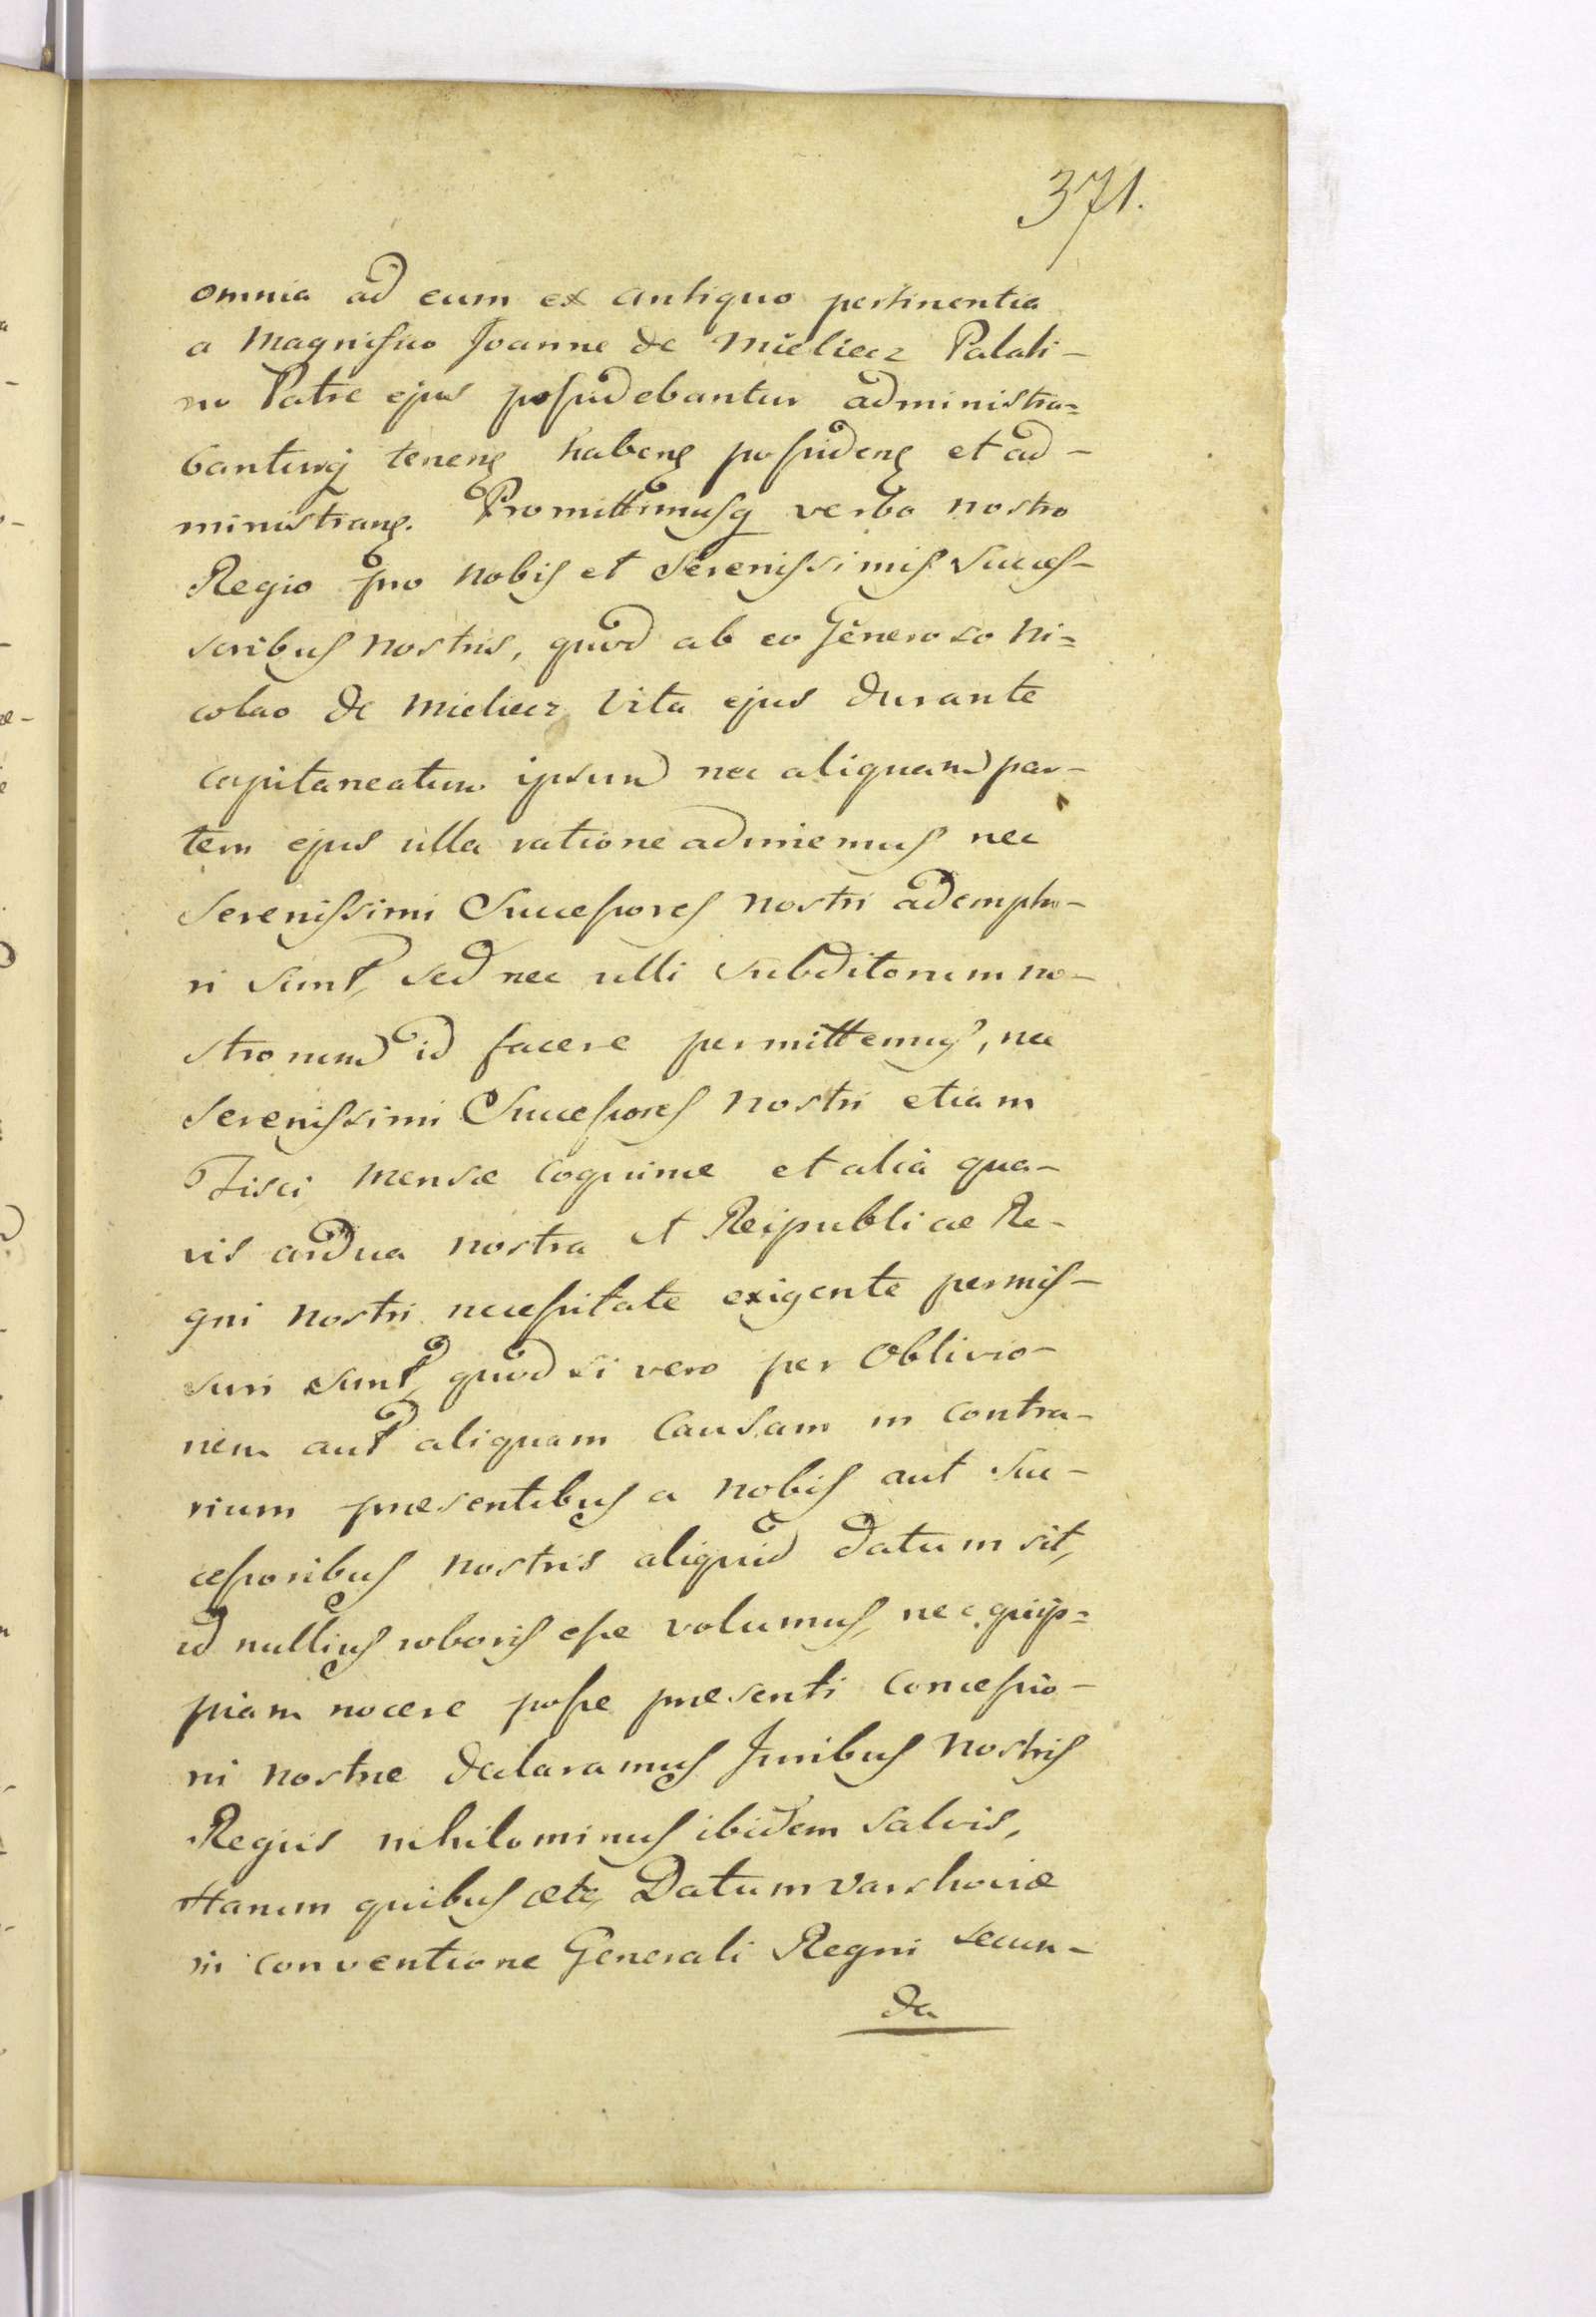 371.
omnia ad eum ex antiquo pertinentia
a Magnifico Joanne de Mieliecz Palati-
no Patre ejus possidebantur administra=
banturq tenenḍ habenḍ possidenḍ et ad-
ministranḍ. Promittimusq verbo nostro
Regio pro nobis et Serenissimis Succes-
soribus nostris, quod ab eo Generoso Ni=
colao de Mieliecz vita ejus durante
capitaneatum ipsum nec aliquam par-
tem ejus ulla ratione adimemus nec
Serenissimi Successores nostri adempturi-
ri sunt, sed nec ulli subditorum no-
strorum id facere permittemus, nec
Serenissimi Successores nostri etiam
Fisci mensæ coquinæ et alia qua-
vis ardua nostra et Reipublicæ Re-
gni nostri necessitate exigente permis-
suri sunt, quod si vero per oblivio-
nem aut aliquam causam in contra-
rium præsentibus a nobis aut suc-
cessoribus nostris aliquid datum sit,
id nullius roboris esse volumus, nec quip=
piam nocere posse præsenti concessio-
ni nostræ declaramus Juribus nostris
Regiis nihilominus ibidem salvis,
Harum quibus etc, Datum Varshoviæ
in conventione Generali Regni secun-
da